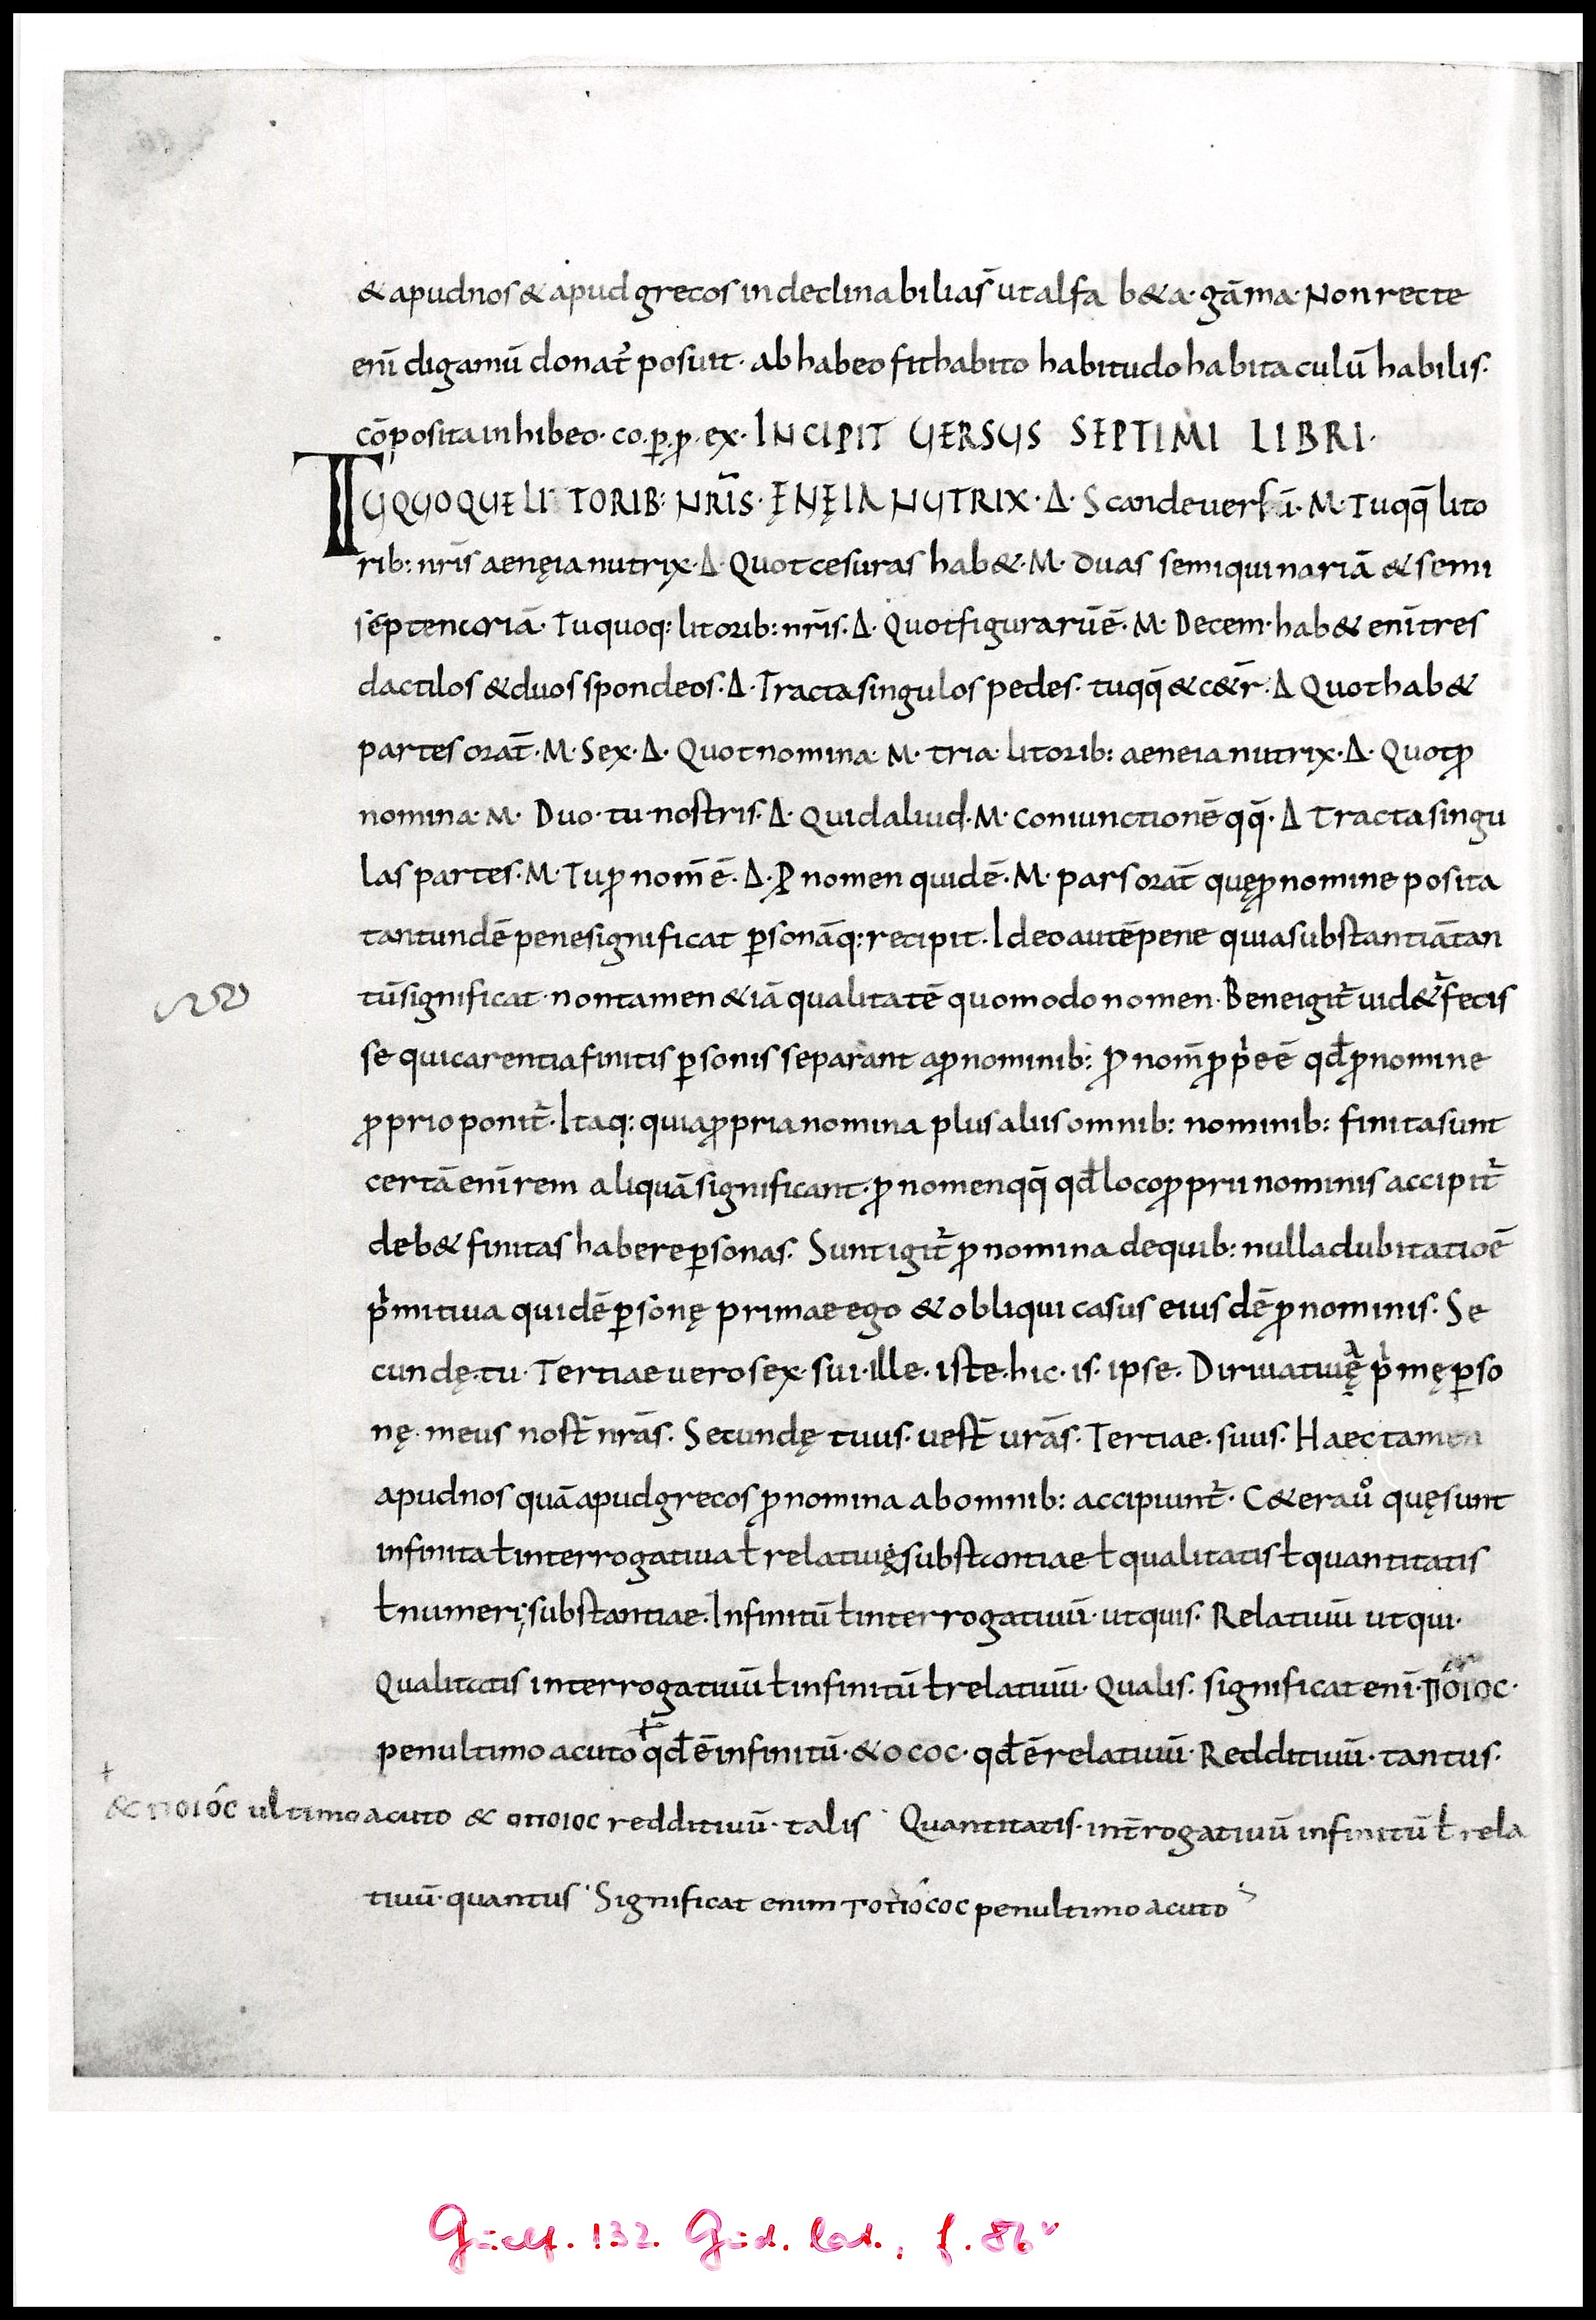 & apud nos & apud grecos indeclinabilia s̄ ut alfa b&a· gāma· Non recte
enī digamū donat᷒ posuit· ab habeo fit habito habitudo habitaculū habilis·
cōposita inhibeo· co· ꝑ· ꝓ· ex· INCIPIT UERSUS SEPTIMI LIBRI·
TU QUOQUE LITORIB: NRĪS· ĘNĘIA NUTRIX· Δ· Scande uersū· M· Tu qq̄ lito
rib: nrīs aenęia nutrix· Δ· Quot cesuras hab&· M· Duas semiquinariā & semi
septenariā· Tu quoq: litorib: nrīs· Δ· Quot figurarū ē· M· Decem· hab& enī tres
dactilos & duos spondeos· Δ· Tracta singulos pedes· tu qq̄ & c&r̄· Δ Quot hab&
partes orat̄· M· Sex· Δ· Quot nomina· M· tria· litorib: aeneia nutrix· Δ· Quot ꝓ
nomina· M· Duo· tu· nostris· Δ· Quid aliud· M· Coniunctionē qq̄· Δ Tracta singu
las partes· M· Tu ꝓnom̄ ē· Δ· Ꝓnomen quid ē· M· pars orat̄ quę ꝓ nomine posita
tantundē pene significat ꝑsonāq: recipit· Ideo autē pene quia substantiā tan
tū significat· non tamen &iā qualitatē quomodo nomen· Bene igit᷒ uid&᷒ fecis
se qui carentia finitis ꝑsonis separant a ꝓnominib: Ꝓnom̄ ꝓpⁱe ē qđ ꝓ nomine
ꝓprio ponit᷒· Itaq: quia ꝓpria nomina plus aliis omnib: nominib: finita sunt
certā enī rem aliquā significant· ꝓnomen qq̄ qđ loco ꝓprii nominis accipit᷒
deb& finitas habere ꝑsonas· Sunt igit᷒ ꝓnomina de quib: nulla dubitatio ē
pⁱmitiua quidē ꝑsonę primae ego & obliqui casus eiusdē ꝓnominis· Se
cundę· tu· Tertiae uero sex· sui· ille· iste· hic· is· ipse· Diriuatiuę pⁱmę ꝑso
nę· meus nost̄ nrās· Secundę tuus· uest̄ urās· Tertiae· suus· Haec tamen
apud nos quā apud grecos ꝓnomina ab omnib: accipiunt᷒· C&era uº quę sunt
infinita ƚ interrogatiua ƚ relatiuę substantiae ƚ qualitatis ƚ quantitatis
ƚ numeri; substantiae· Infinitū ƚ interrogatiuū· ut quis· Relatiuū ut qui·
Qualitatis interrogatiuū ƚ infinitū ƚ relatiuū· Qualis· significat enī· ΠόΙΟC·
penultimo acuto qđ ē infinitū· & ΟCΟC· qđ ē relatiuū· Redditiuū· tantus·
+
& ΠΟΙόC ultimo acuto & ΟΠΟΙΟC redditiuū· talis· Quantitatis· int̄rogatiuū infinitū ƚ rela
tiuū· quantus· Significat enim ΤΟΠόCΟC penultimo acuto
Guelf. 132. Gud. lat., f. 86ᵛ